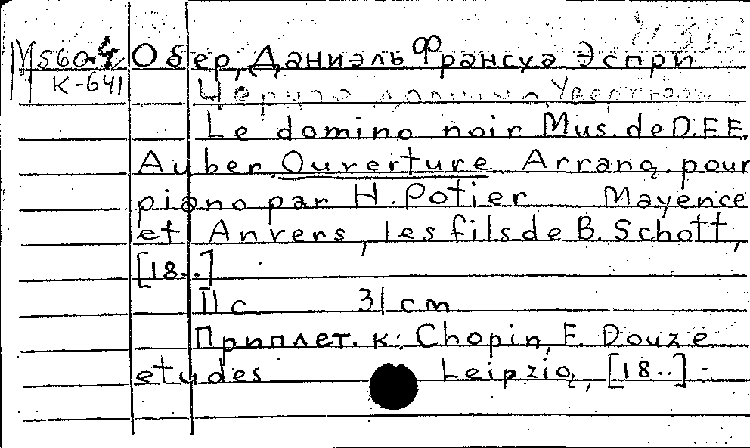 Ms604 Обер, Даниэль Франсуа Эспри
К-641
Черное домино. Увертюра
Le domino noir Mus. de D.F.E.
Auber Ouverture Arrang. pour
piano par H. Potier Mayence
et Anvers, les fils de B. Schott,
[18..]
11 с 31 cm
Приплет. к: Chopin, F. Douze
etudes Leipzig, [18..] -